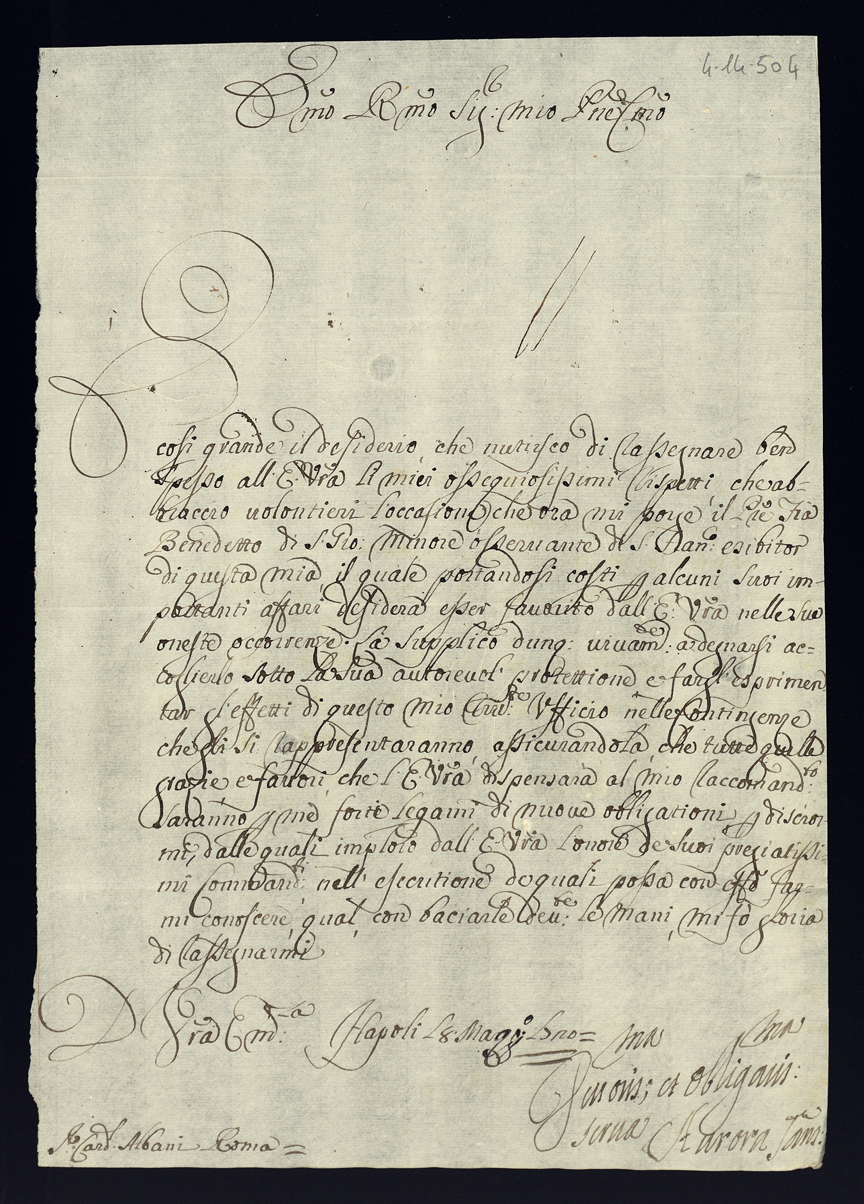 4.14.504
Emo Rmo Sig: mio Pne Cmo
È
cosi grande il desiderio, che nutrisco di rassegnare ben
spesso all'E: Vrã li miei ossequiosissimi rispetti che ab-
braccio volontieri l'occasione che ora mi porge il Pre Fra
Benedetto di S. Gio: Minore osservante di S. esibitor
di questa mia, il quale portandosi costi p alcuni suoi im-
portanti affari desidera esser favorito dall'E: Vrã nelle sue
oneste occorrenze. La supplico dunq: vivamte: a degnarsi ac-
coglierlo sotto la sua autorevol protettione e fargl'esprimen
tar gl'effetti di questo mio Ufficio nelle Contingenze
che gli si rappresentaranno, assicurandola, che tutte quelle
grazie e favori, che l'E: Vrã dispensarà al mio raccomandto:
saranno p me forti legami di nuove obligationi p
mi, dalle quali imploro dall'E: Vrã l'onore de suoi pregiatissi-
mi Comandi: nell'esecutione de quali possa con far-
mi conoscere, qual, con baciarle devte: le mani, mi fò gloria
di rassegnarmi
D Vrã Emza: Napoli 18: Magg:
Devotis: et Obligatis:
serva Aurora San:
Sr Card. Albani Roma=